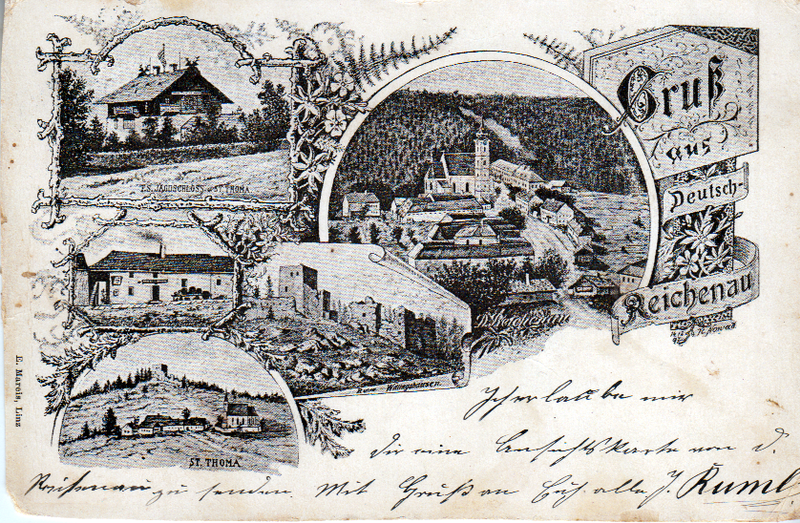 Gruß
aus
Deutsch-
Reichenau
F.S. JAGDSCHLOSS ST. THOMA
D. Reichenau
Ruine Wittinghausen
ST. THOMA
E. Mareis, Linz
Ich erlaube mir
dir eine Ansichtskarte von d.
Reichenau zu senden. Mit Gruß an Euch alle J. Ruml